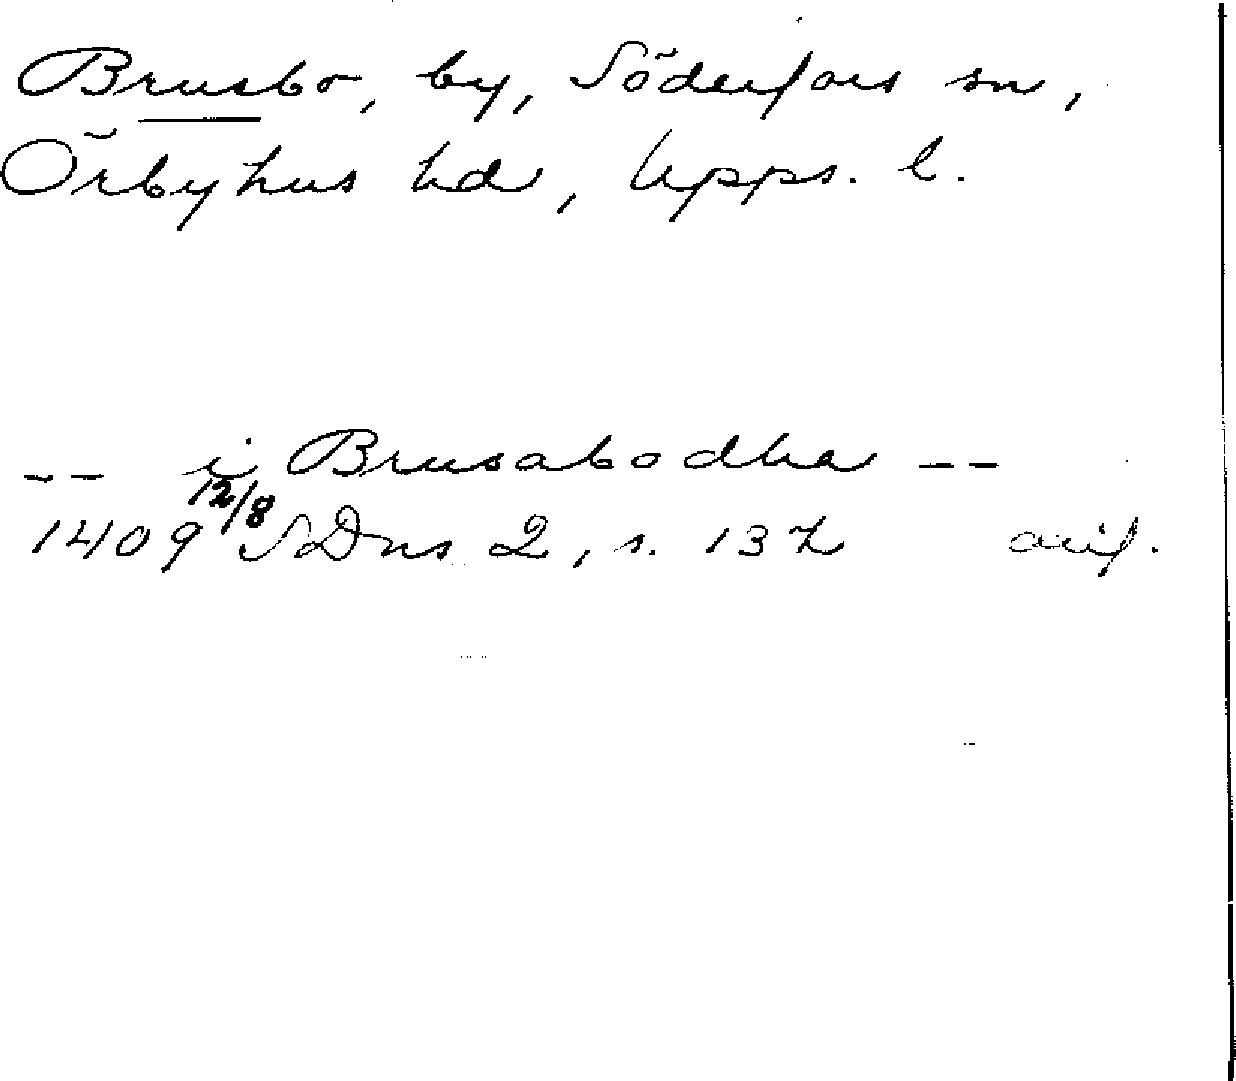 Brusbo, by, Söderfors sn,
Örbyhus hd, Upps. l.
-- i Brusabodha --
1409 12/8 SDns 2, s. 137 avif.